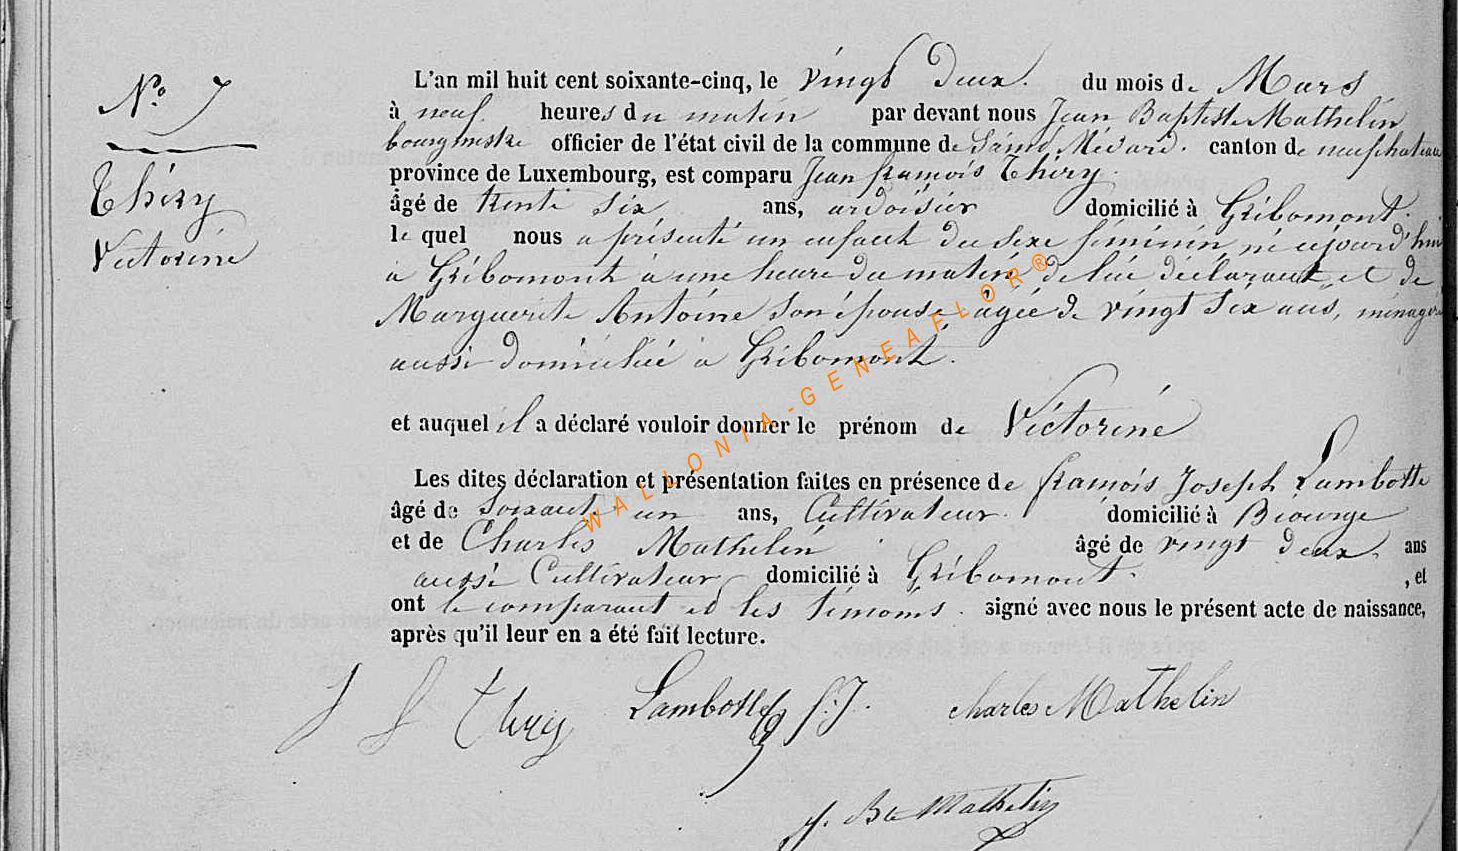 N.° 7
Thiry
Victorine
L'an mil huit cent soixante-cinq, le vingt deux. du mois de Mars
à neuf heures du matin par devant nous Jean Baptiste Mathelin
bourgmestre officier de l'état civil de la commune de Saint Médard. canton de neufchateau
province de Luxembourg, est comparu Jean françois Thiry.
âgé de trente six ans, ardoisier domicilié à Gribomont.
le quel nous a présenté un enfant du sexe féminin né aujourd'hui
à Gribomont à une heure du matin de lui déclarant et de
Marguerite Antoine son épouse agée de vingt six ans, ménagère
aussi domicilié à Gribomont.
et auquel il a déclaré vouloir donner le prénom de Victorine
Les dites déclaration et présentation faites en présence de françois Joseph Lambotte
âgé de Soixante un ans, Cultivateur. domicilié à Biourge
et de Charles Mathelin âgé de vingt deux ans
aussi Cultivateur domicilié à Gribomont. , et
ont le comparant et les témoins. signé avec nous le présent acte de naissance,
après qu'il leur en a été fait lecture.
J f Thiry Lambotte f. J. charles Mathelin
J. Bte Mathelin
WALLONIA-GENEAFLOR®